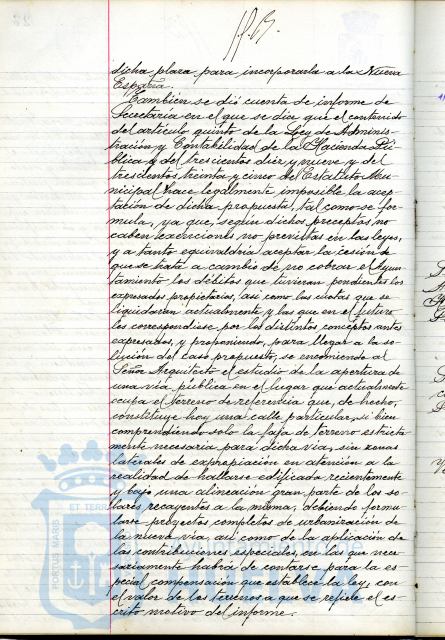 dicha plaza para incorporarla a la Nueva
España.
Tambien se dió cuenta de informe de
Secretaría en el que se dice que el contenido
del artículo quinto de la Ley de Adminis-
tración y Contabilidad de la Hacienda Pú-
blica y del trescientos diez y nueve y del
trescientos treinta y cinco del Estatuto Mu-
nicipal hace legalmente imposible la acep-
tación de dicha propuesta tal como se for-
mula, ya que, según dichos preceptos no
caben exenciones no previstas en las leyes,
y a tanto equivaldría aceptar la cesión de
que se trata a cambio de no cobrar el Ayun-
tamiento los débitos que tuvieran pendientes los
expresados propietarios, así como las cuotas que se
liquidaran actualmente y las que en el futuro
les correspondiese por los distintos conceptos antes
expresados, y proponiendo, para llegar a la so-
lución del caso propuesto, se encomiende al
Señor Arquitecto el estudio de la apertura de
una via pública en el lugar que actualmente
ocupa el terreno de referencia que, de hecho,
constituye hoy una calle particular, si bien
comprendiendo solo la faja de terreno estricta-
mente necesaria para dicha via, sin zonas
laterales de expropiación en atención a la
realidad de hallarse edificada recientemente
y bajo una alineación gran parte de los so-
lares recayentes a la misma, debiendo formu-
larse proyectos completos de urbanización de
la nueva via, así como de la aplicación de
las contribuciones especiales, en las que nece-
sariamente habrá de contarse para la es-
pecial compensación que establece la ley, con
el valor de los terrenos a que se refiere el es-
crito motivo del informe.
PORTUS MARIS
ET TERR